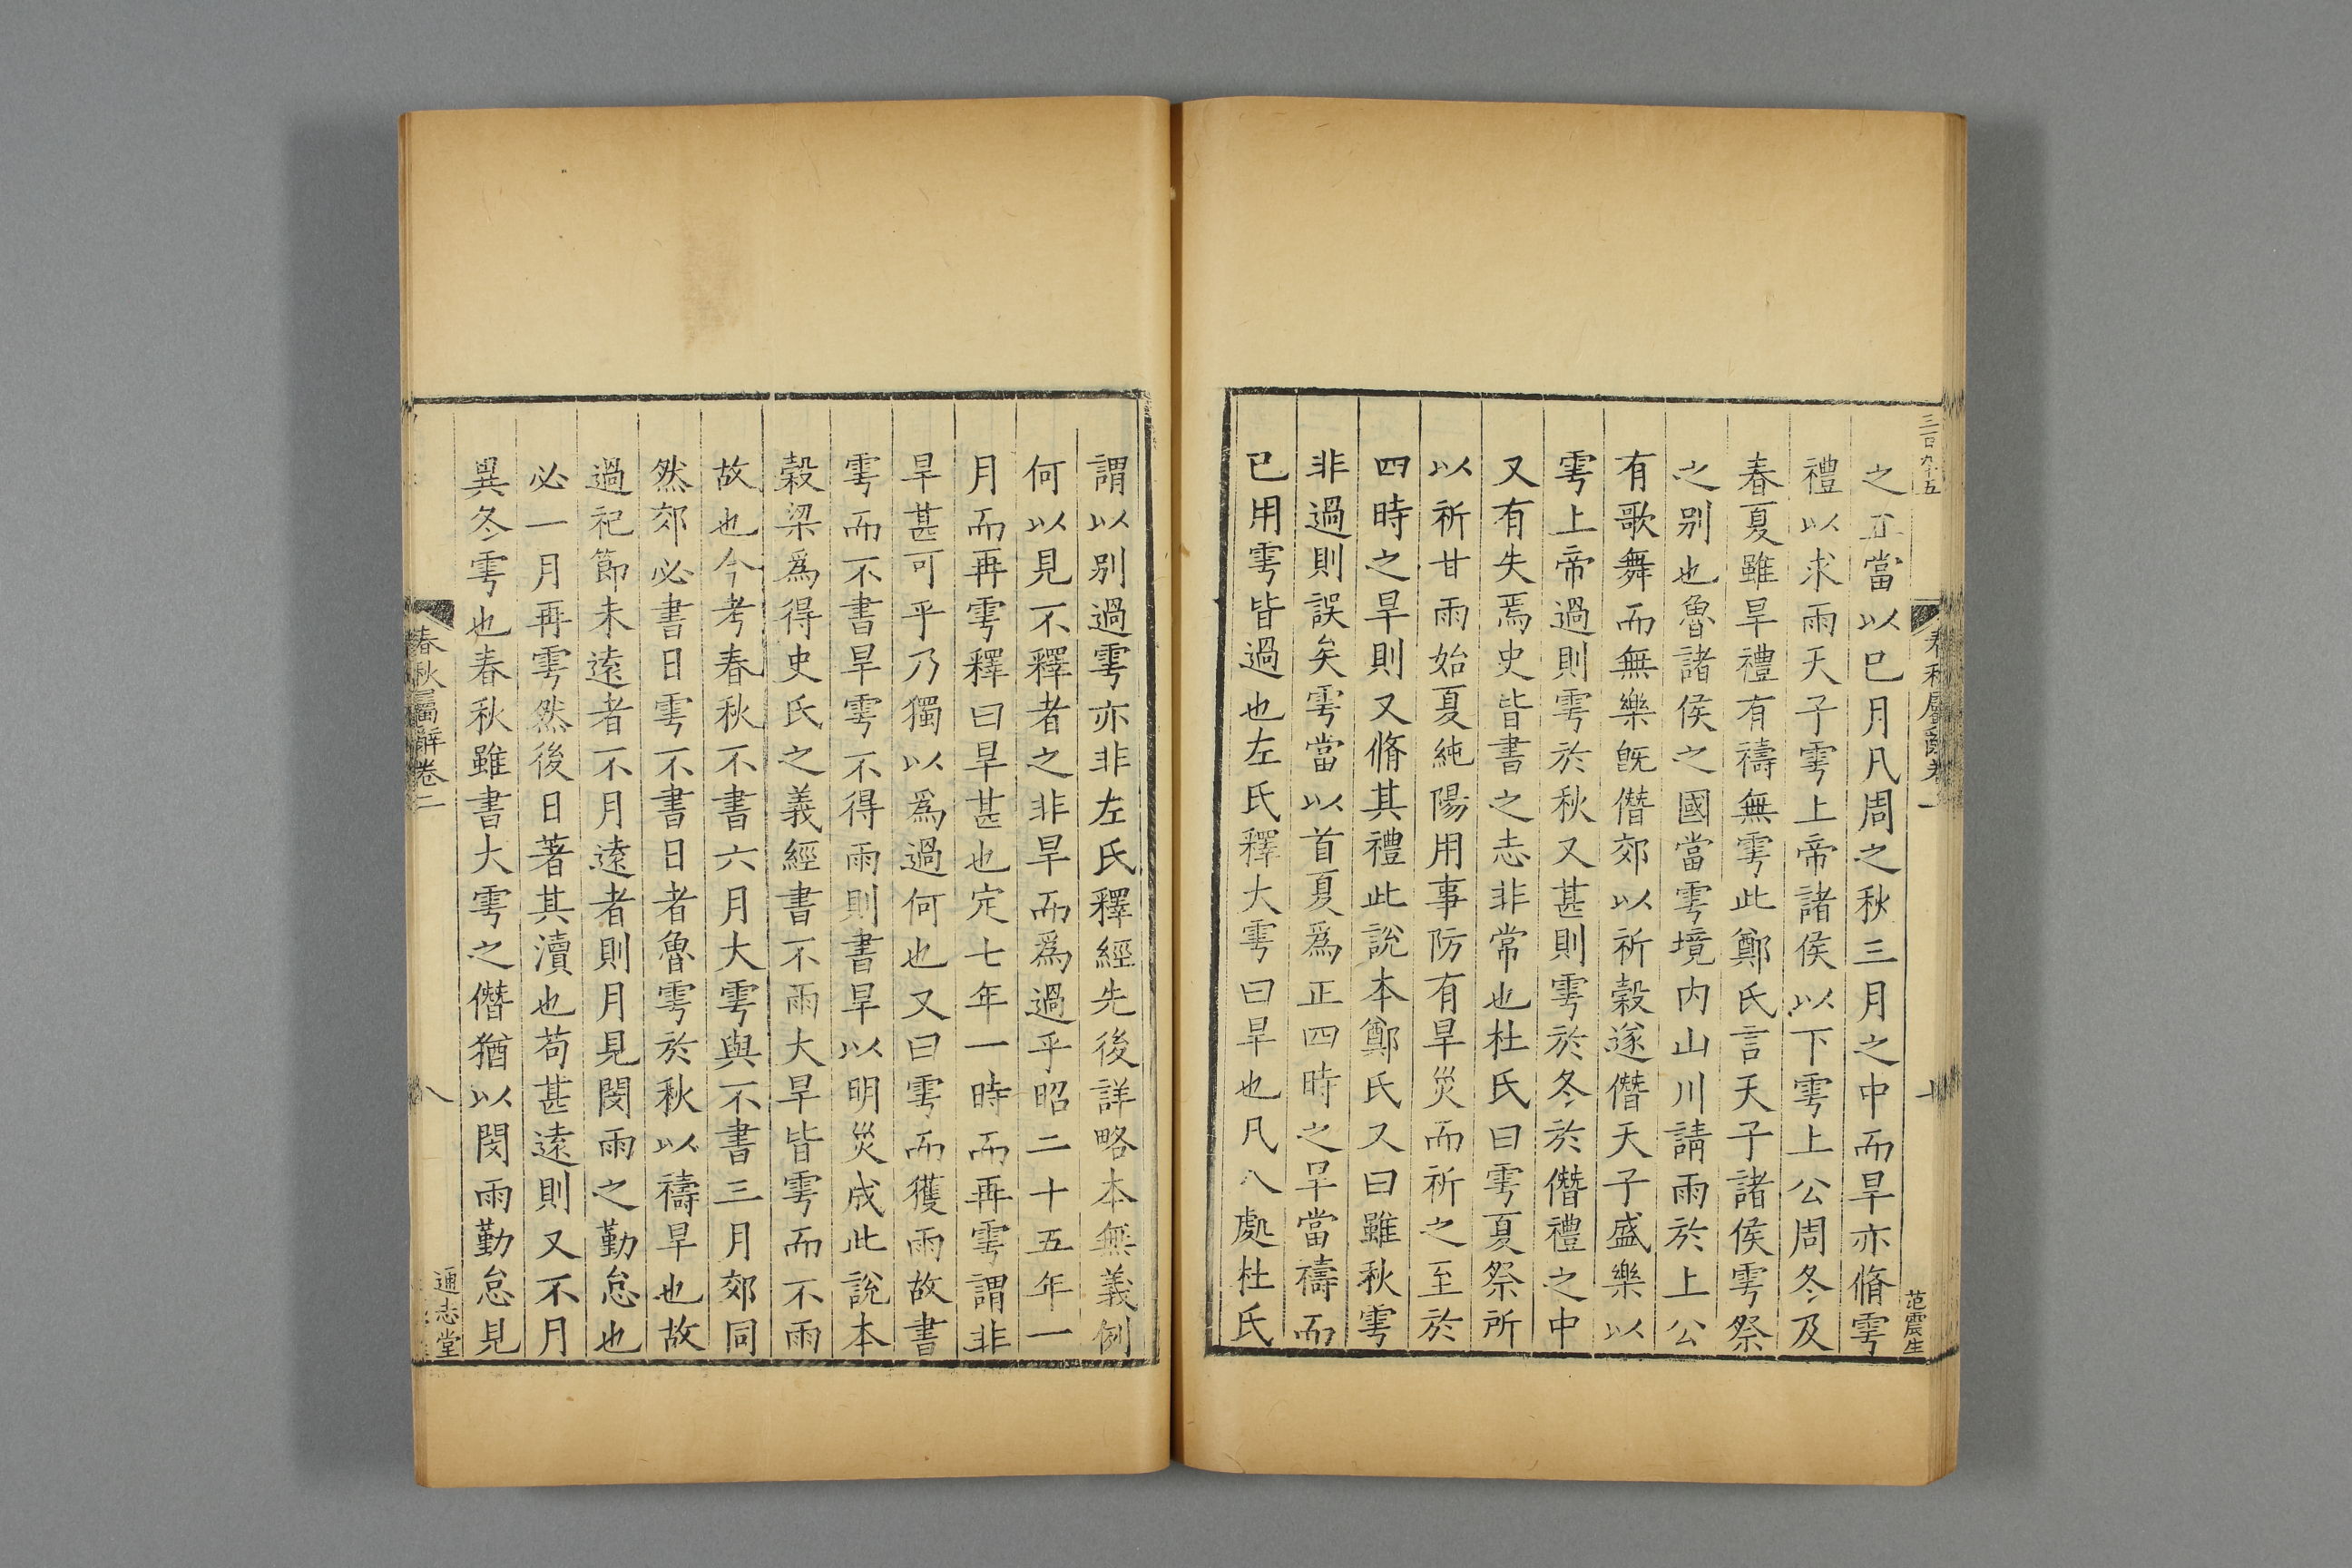 三百九十五
之正當以巳月凡周之秋三月之中而旱亦脩雩
禮以求雨天子雩上帝諸侯以下雩上公周冬及
春夏雖旱禮有禱無雩此鄭氏言天子諸侯雩祭
之别也魯諸侯之國當雩境内山川請雨於上公
有歌舞而無樂旣僭郊以祈穀遂僭天子盛樂以
雩上帝過則雩於秋又甚則雩於冬於僭禮之中
又有失焉史皆書之志非常也杜氏曰雩夏祭所
以祈甘雨始夏純陽用事防有旱災而祈之至於
四時之旱則又脩其禮此說本鄭氏又曰雖秋雩
非過則誤矣雩當以首夏爲正四時之旱當禱而
已用雩皆過也左氏釋大雩曰旱也凡八處杜氏
范震生
謂以别過雩亦非左氏釋經先後詳略本無義例
何以見不釋者之非旱而爲過乎昭二十五年一
月而再雩釋曰旱甚也定七年一時而再雩謂非
旱甚可乎乃獨以爲過何也又曰雩而獲雨故書
雩而不書旱雩不得雨則書旱以明災成此說本
榖梁爲得史氏之義經書不雨大旱皆雩而不雨
故也今考春秋不書六月大雩與不書三月郊同
然郊必書日雩不書日者魯雩於秋以禱旱也故
過祀節未遠者不月遠者則月見閔雨之勤怠也
必一月再雩然後日著其瀆也苟甚遠則又不月
異冬雩也春秋雖書大雩之僭猶以閔雨勤怠見
春秋屬辭卷二
八
通志堂